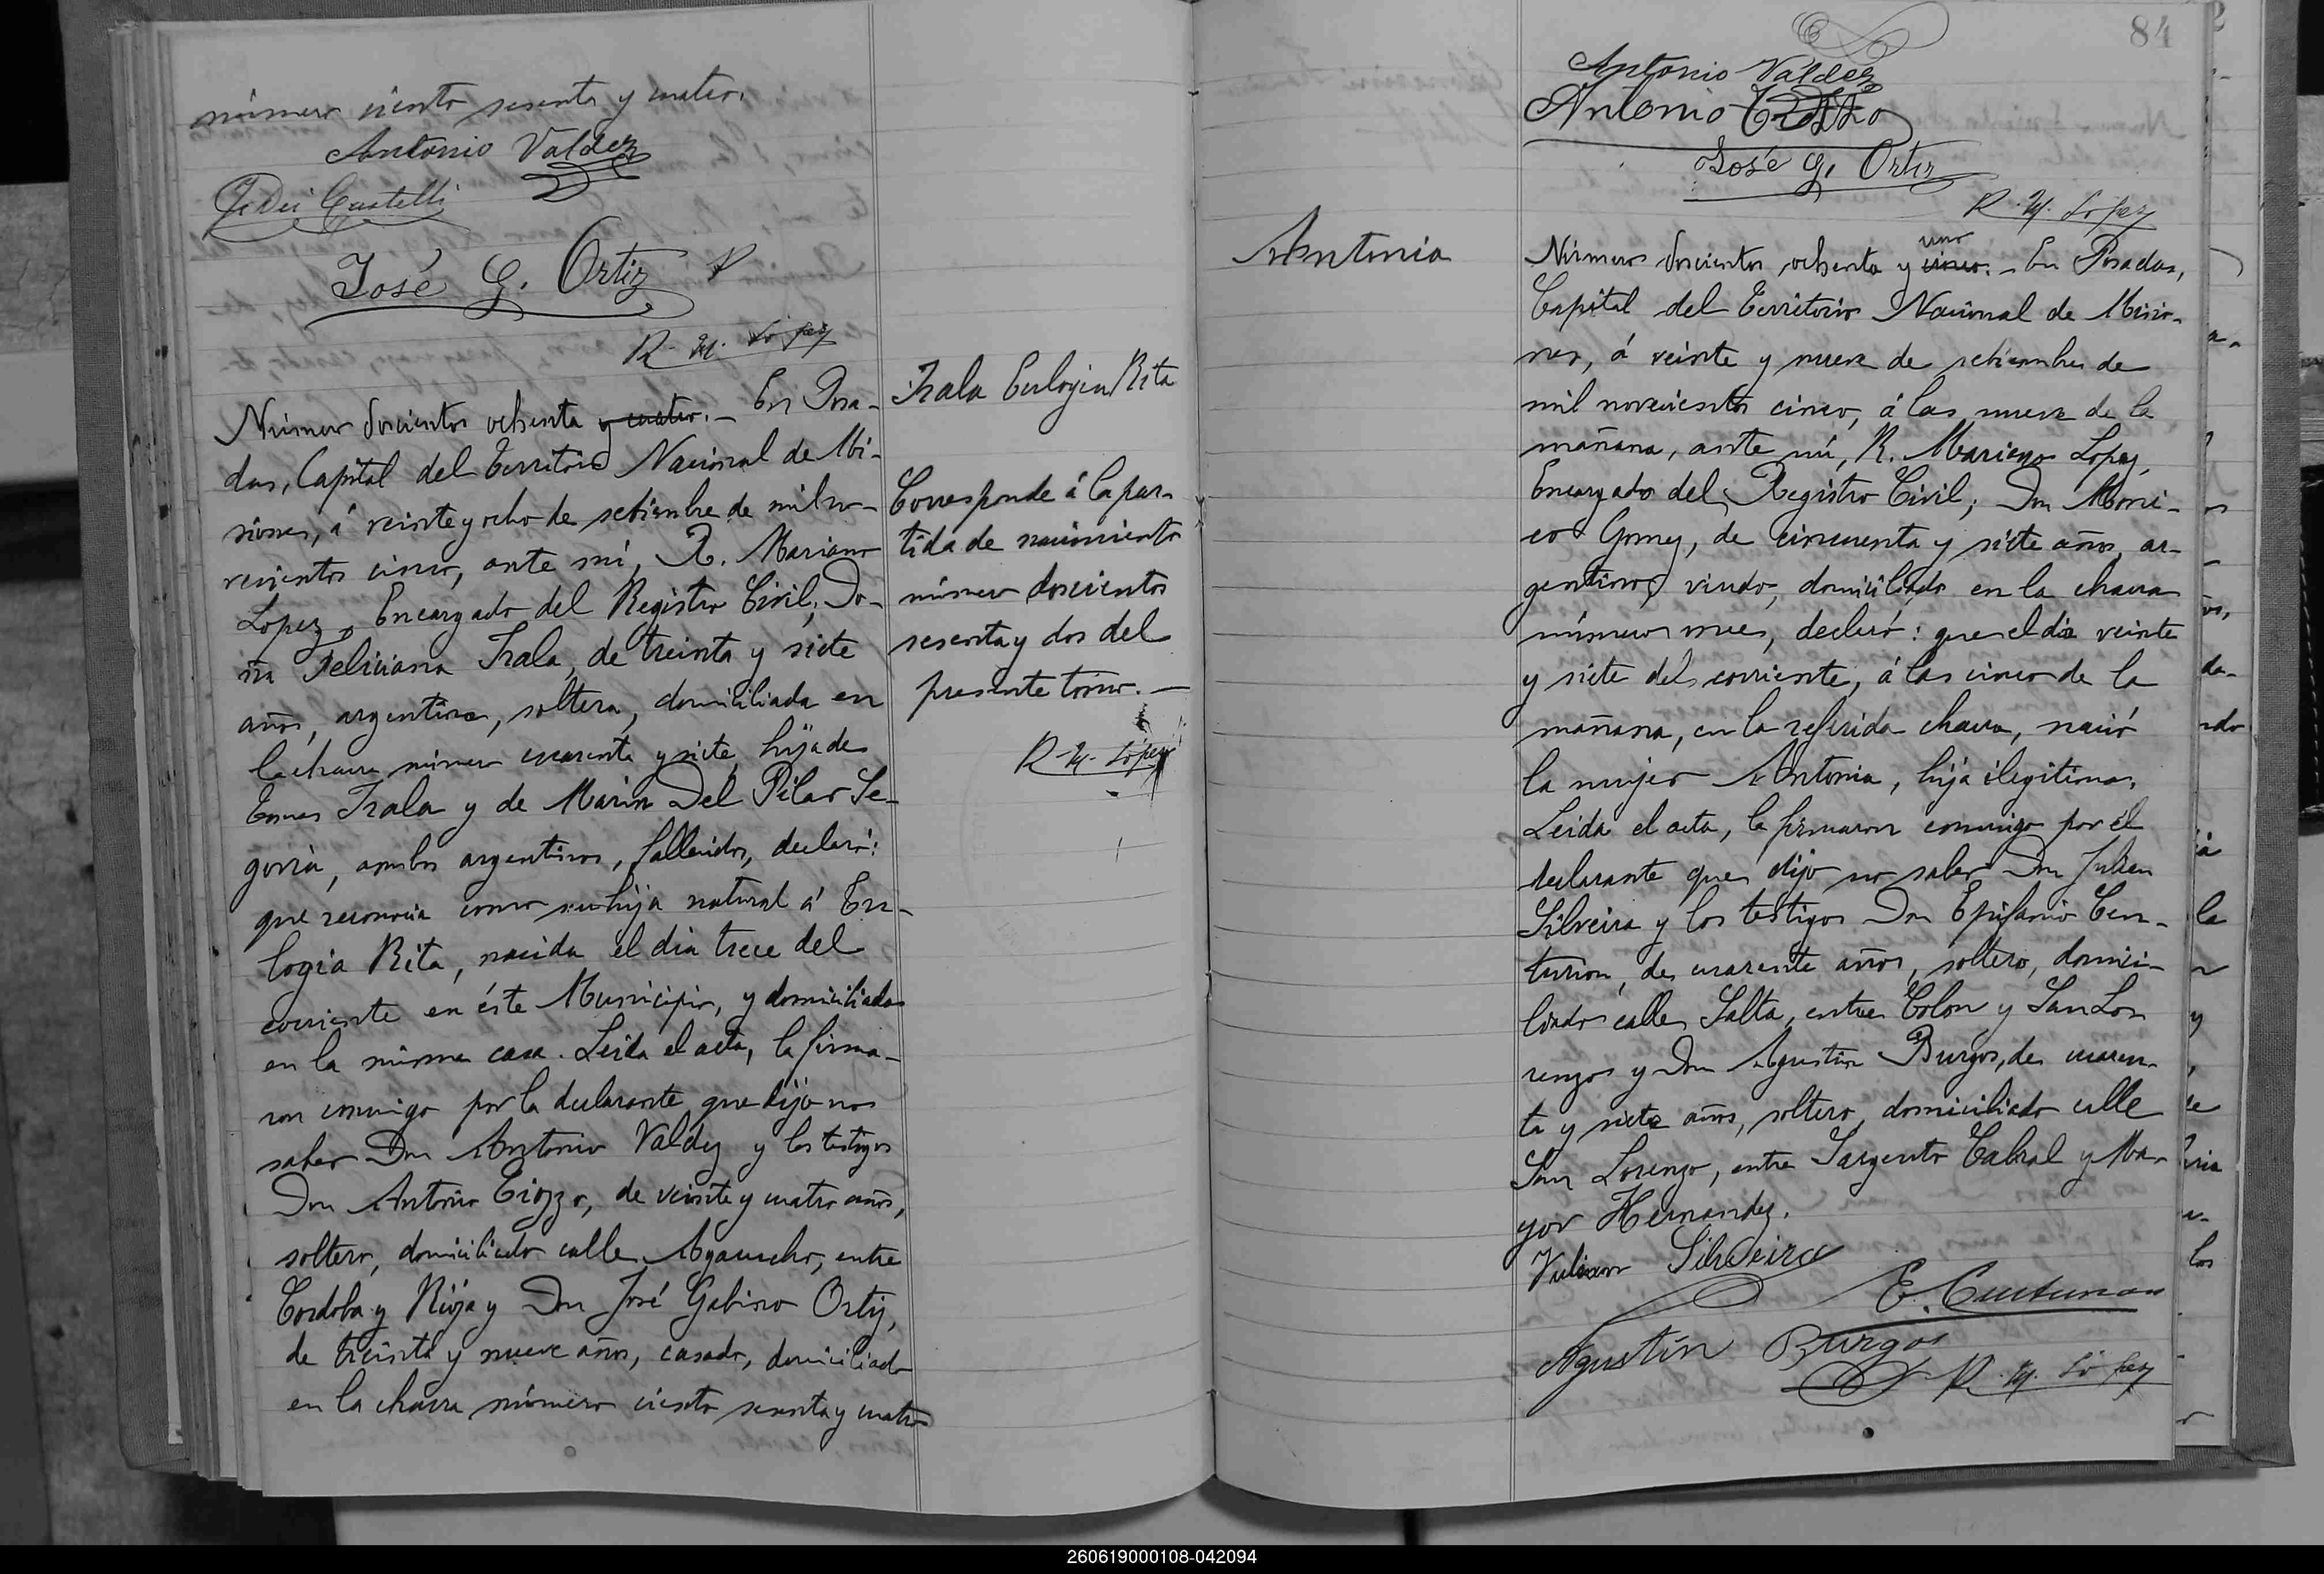 número ciento sesenta y cuatro.
Antonio Valdez
José G. Ortiz
R. M. López
Número doscientos ochenta y cuatro. - En Posa-
das, Capital del Territorio Nacional de Mi-
siones, á veinte y ocho de setiembre de mil no-
vecientos cinco, ante mí, R. Mariano
Lopez, Encargado del Registro Civil; Do-
ña Feliciana Irala, de treinta y siete
años, argentina, soltera, domiciliada en
la chacra número cuarenta y siete, hija de
Irala y de Maria Del Pilar Se-
govia, ambos argentinos, fallecidos, declaró:
que reconocia como su hija natural á Eu-
logia Rita, nacida el dia trece del
corriente en éste Municipio, y domiciliada
en la misma casa. Leida el acta, la firma-
ron conmigo por la declarante que dijo no
saber Don Antonio Valdez y los testigos
Don Antonio Tiozzo, de veinte y cuatro años,
soltero, domiciliado calle Ayacucho, entre
Cordoba y Rioja y Don José Gabino Ortiz,
de treinta y nueve años, casado, domiciliado
en la chacra número ciento sesenta y cuatro
Irala Eulogia Rita
Corresponde á la par-
tida de nacimiento
número doscientos
sesenta y dos del
presente tomo. -
R. M. López
84
Antonio Valdez
Antonio Tiozzo
José G. Ortiz
R. M. López
Antonia
uno
Número doscientos ochenta y cinco. - En Posadas,
Capital del Territorio Nacional de Misio-
nes, á veinte y nueve de setiembre de
mil novecientos cinco, á las nueve de la
mañana, ante mí, R. Mariano Lopez,
Encargado del Registro Civil; Don
Gomez, de cincuenta y siete años, ar-
gentino, viudo, domiciliado en la chacra
número nueve, declaró: que el dia veinte
y siete del corriente, á las cinco de la
mañana, en la referida chacra, nació
la mujer Antonia, hija ilegitima.
Leida el acta, la firmaron conmigo por el
declarante que dijo no saber Don Julian
Silveira y los testigos Don Epifanio Cen-
turion, de cuarenta años, soltero, domici-
liado calle Salta, entre Colon y San Lo-
renzo y Don Agustin Burgos, de cuaren-
ta y siete años, soltero, domiciliado calle
San Lorenzo, entre Sargento Cabral y Ma-
yor Hernandez.
Julian Silveira
E. Centurion
Agustín Burgos
R. M. López
260619000108-042094